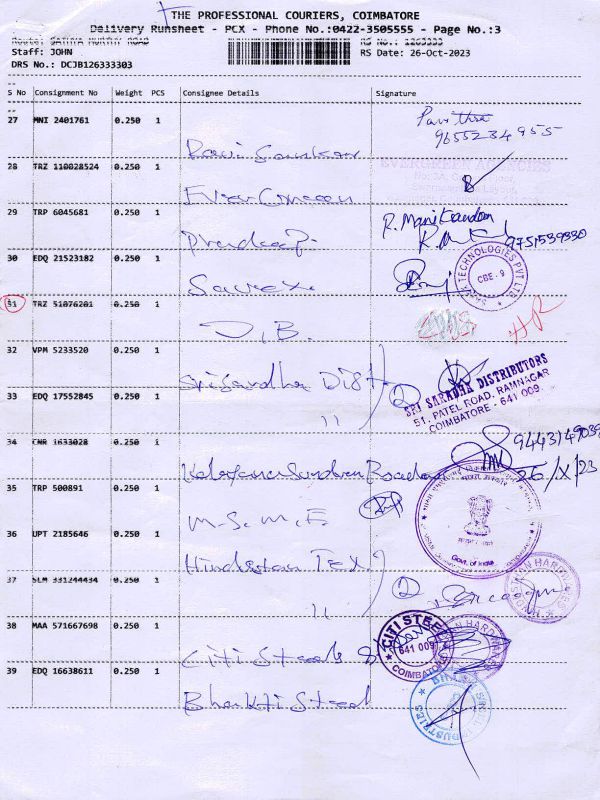 THE PROFESSIONAL COURIERS, COIMBATORE
Delivery Runsheet - PCX - Phone No.:0422-3505555 - Page No.:3
Route: SATHYA MURTHY ROAD
RS No.: 1263333
Staff: JOHN
RS Date: 26-Oct-2023
DRS No.: DCJB126333303
S No Consignment No Weight PCS Consignee Details Signature
27 MNI 2401761 0.250 1
9655234955
Ravi Sankar
28 TRZ 110028524 0.250 1
EVERGREEN AGENCIES
Ever Green
29 TRP 6045681 0.250 1 R. Manikandan
9751539330
Pradeep.
30 EDQ 21523182 0.250 1
TECHNOLOGIES PVT LTD
CBE-9
31 TRZ 51076201 0.250 1
HR
J.B.
32 VPM 5233520 0.250 1
Sri Sardha Dist
2
SRI SARADHA DISTRIBUTORS
51, PATEL ROAD, RAMNAGAR
COIMBATORE - 641 009.
33 EDQ 17552845 0.250 1
11
34 CNR 1633028 0.250 1
26/X/23
35 TRP 500891 0.250 1
M.S.M.E
Govt. of India
36 UPT 2185646 0.250 1
Hindustan Tex.
37 SLM 331244434 0.250 1
2
11
38 MAA 571667698 0.250 1
CITI STEEL
641 009
COIMBATORE
Citi Steels
39 EDQ 16638611 0.250 1
Bhakti Steel
INDUSTRIES